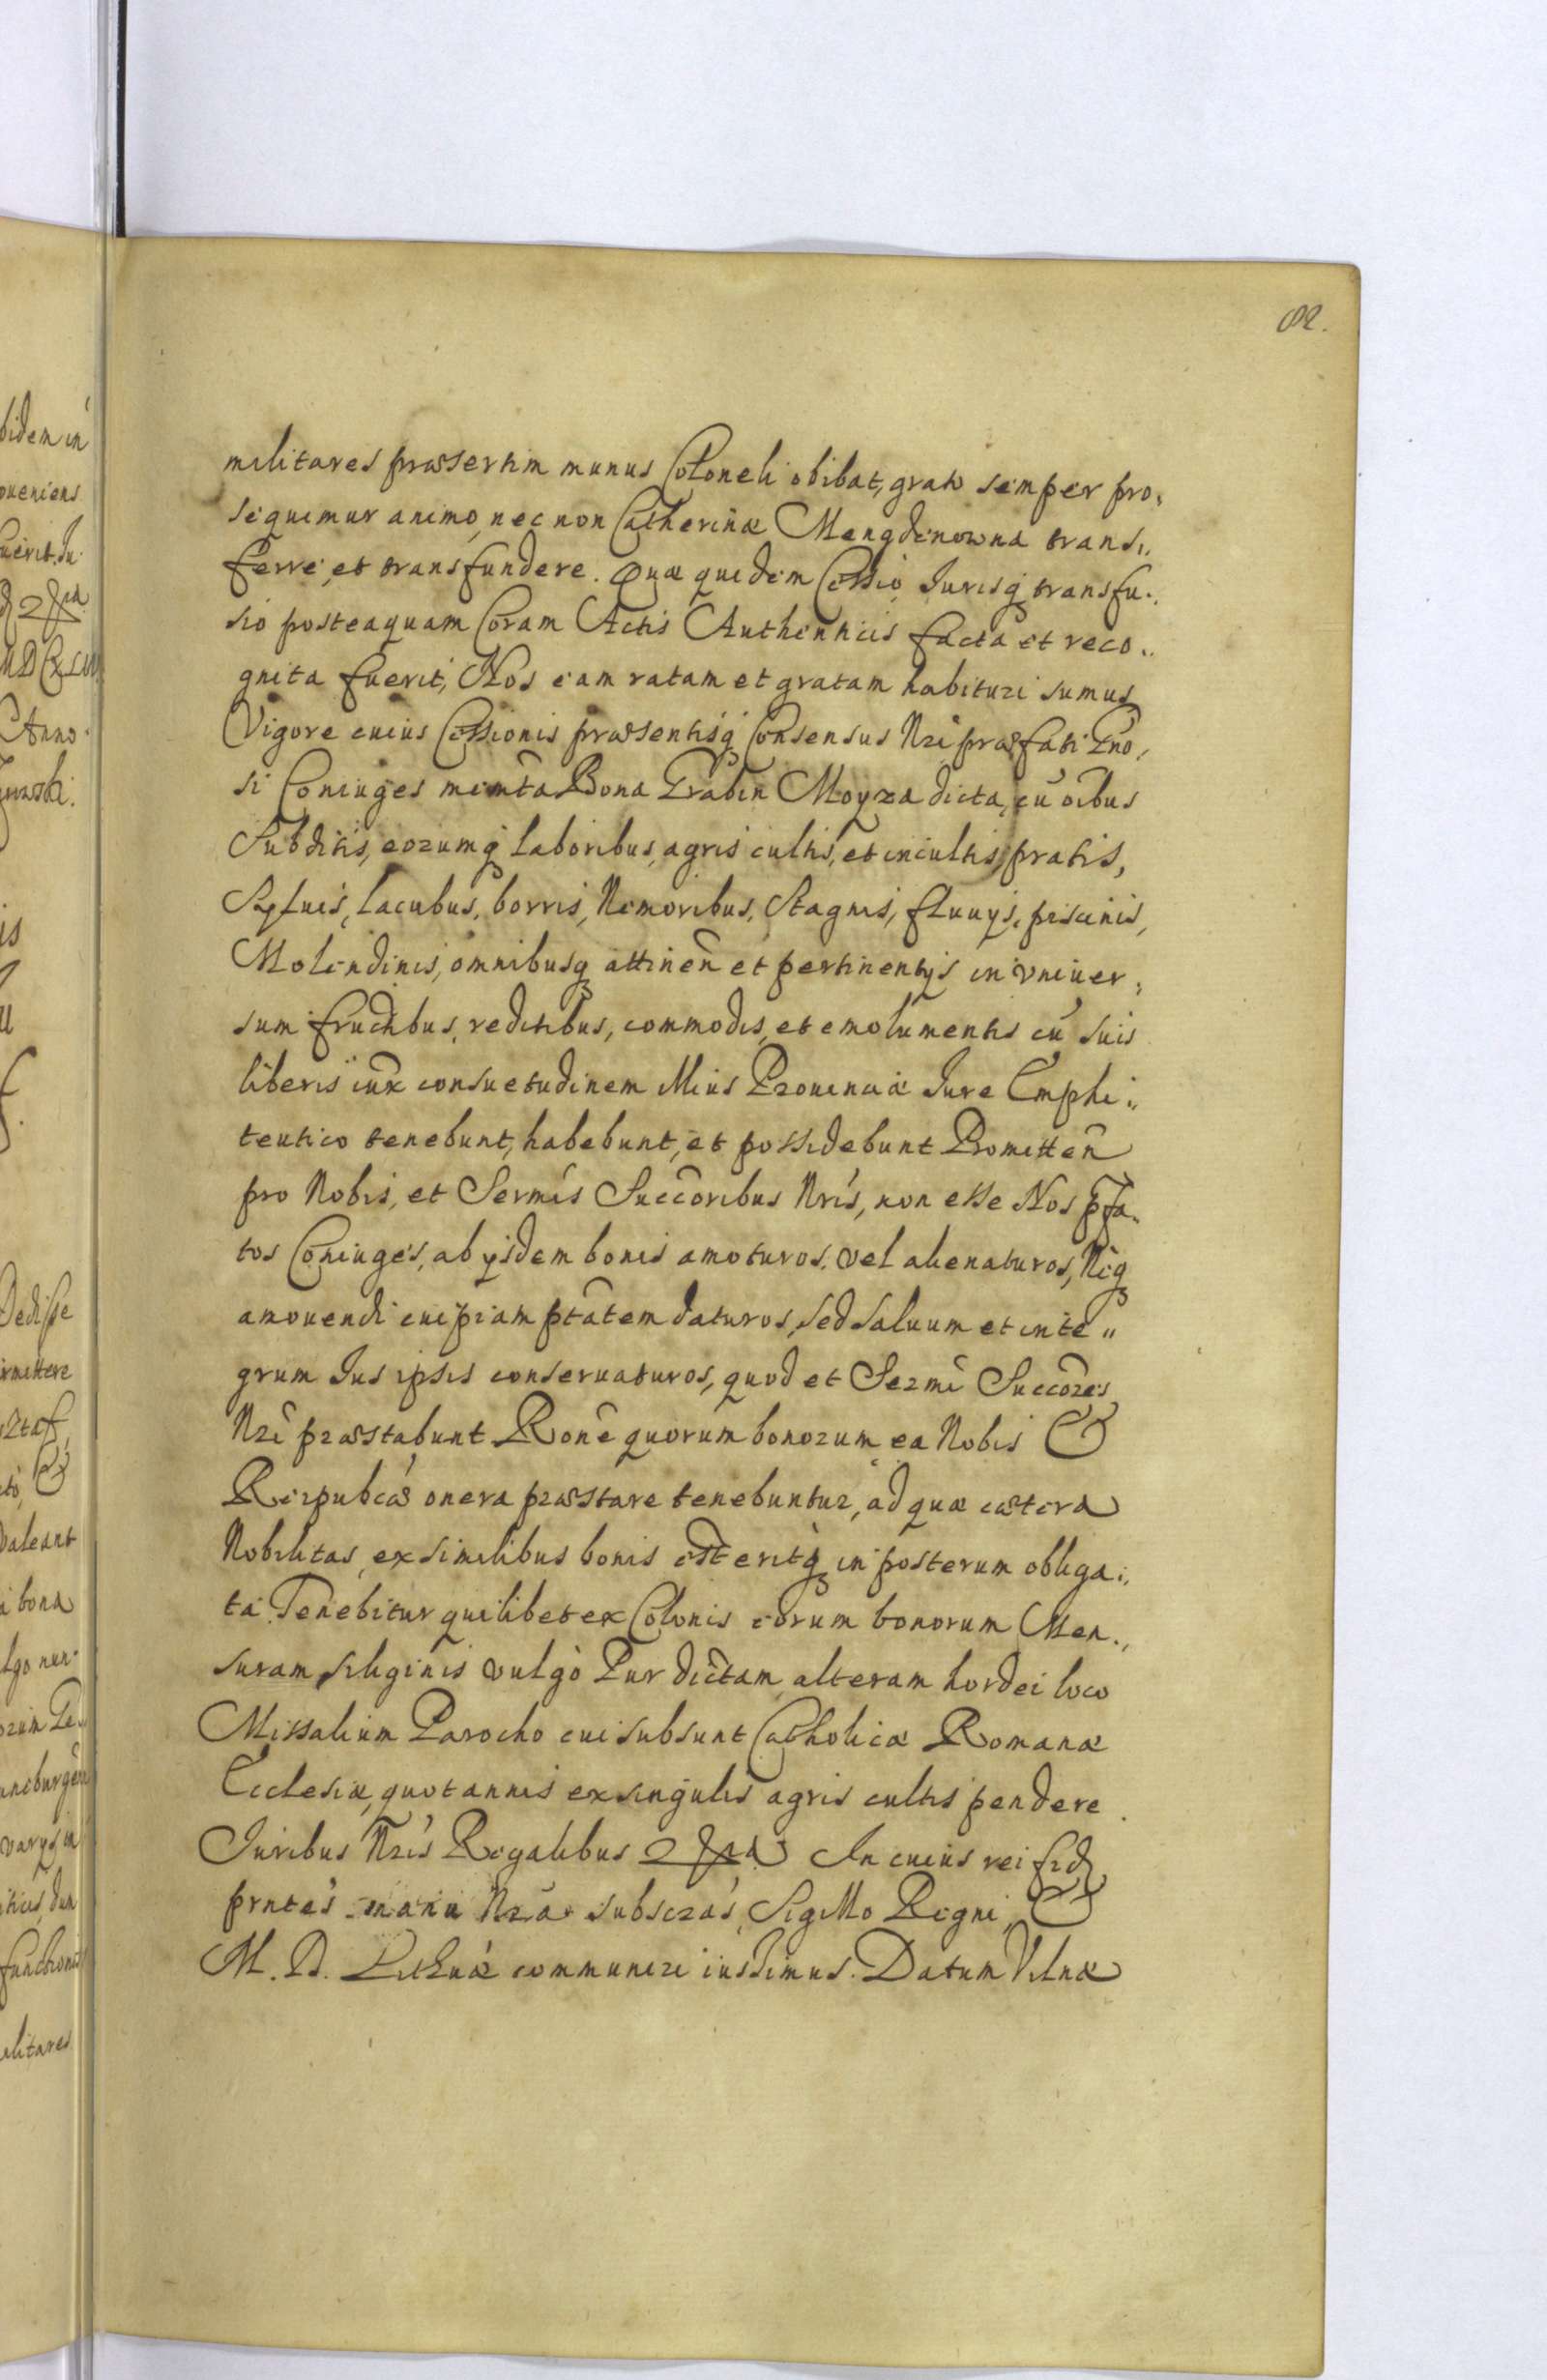 82.
militares præsertim munus Coloneli obibat, grato semper pro,
sequimur animo, nec non Catherinæ Mengdenowna trans,,
ferre, et transfundere. Quæ quidem Cessio Jurisq transfu.,
sio posteaquam Coram Actis Authenticis facta et reco..
gnita fuerit, Nos eam ratam et gratam habituri sumus
Vigore cuius Cessionis præsentisq Consensus Nri præfati Gno,
si Coniuges memta Bona Grabin Moyza dicta, cu oibus
Subditis, eorumq laboribus, agris cultis, et incultis, pratis,
Syluis, lacubus, borris, Nemoribus, Stagnis, fluuys, piscinis,
Molendinis, omnibusq attinen et pertinentys in vniuer,
sum fructibus, reditibus, commodis, et emolumentis cu suis
liberis iux consuetudinem illius Prouinciæ Jure Emphi,,
teutico tenebunt, habebunt, et possidebunt Promitten
pro Nobis, et Sermis Succoribus Nris, non esse Nos pfa,
tos Coniuges, ab ysdem bonis amoturos, vel alienaturos, Neq
amouendi cuipiam ptatem daturos, sed saluum et inte,,
grum Jus ipsis conseruaturos, quod et Sermi Succores
Nri præstabunt Rone quorum bonorum ea Nobis &
Reipubcæ onera præstare tenebuntur, ad quæ cætera
Nobilitas, ex similibus bonis est eritq in posterum obliga,,
ta. Tenebitur quilibet ex Colonis eorum bonorum Men.,
suram siliginis vulgò Pur dictam alteram hordei loco
Missalium Parocho cui subsunt Catholicæ Romanæ
Ecclesiæ, quotannis ex singulis agris cultis pendere
Juribus Nris Regalibus In cuius rei fid
prntes manu Nra subscras, Sigillo Regni &
M. D. Lithuæ communiri iussimus. Datum Vilnæ